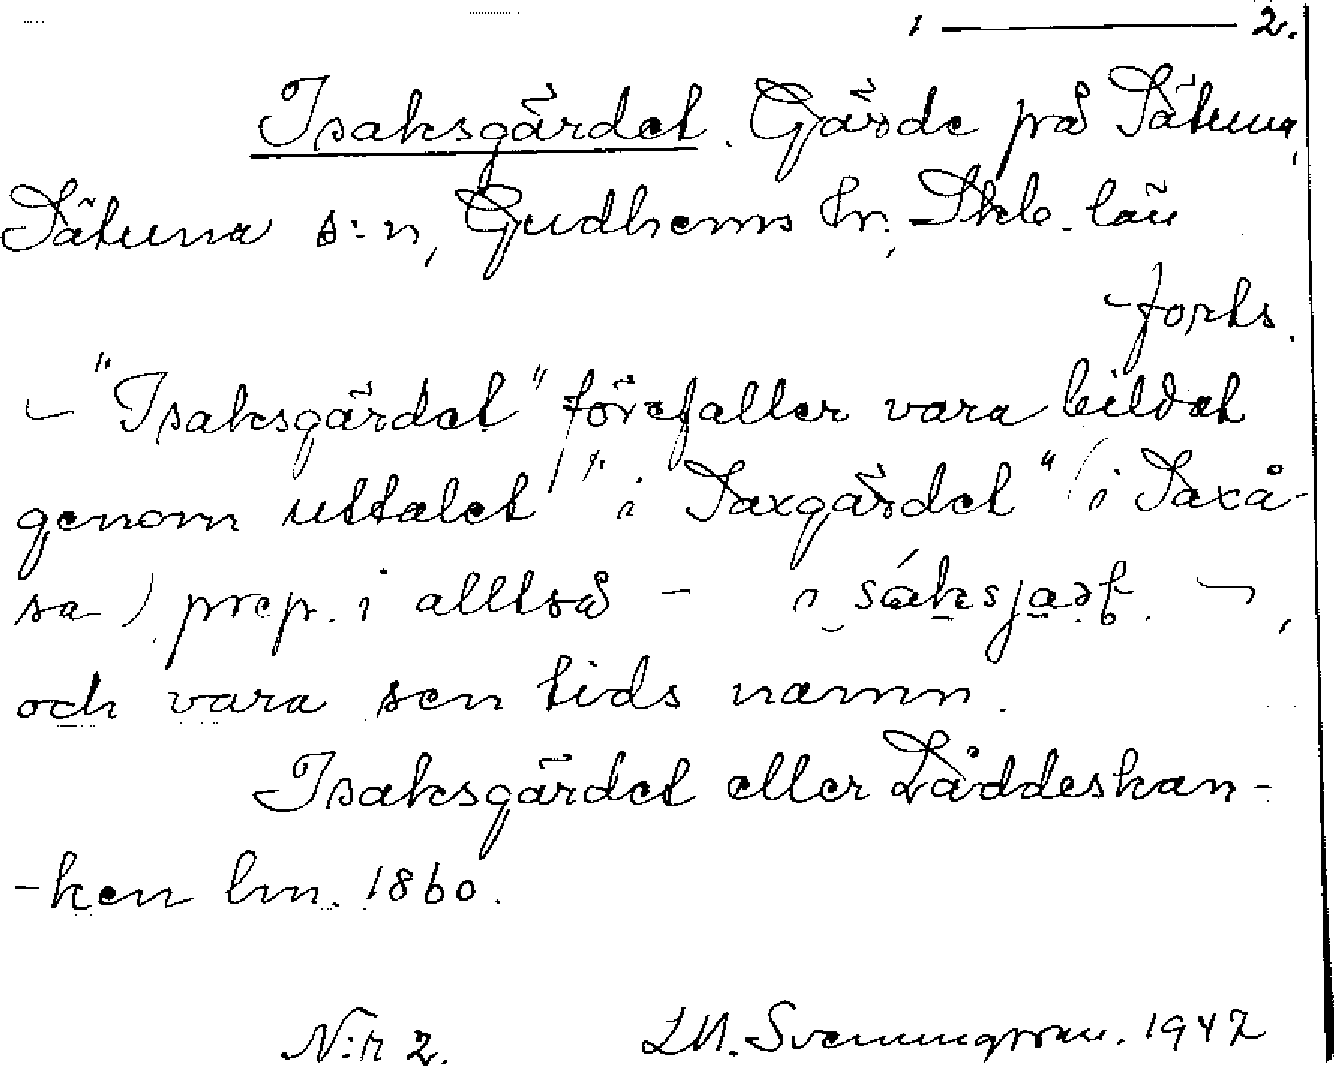 1 ——— 2.
Isaksgärdet. Gärde på Sätuna,
Sätuna s:n, Gudhems hr, Skb. län
forts.
- "Isaksgärdet" förefaller vara bildat
genom uttalet "i Saxgärdet" (i Saxå-
sa) prep. i alltså - i sáksjaət -,
och vara sen tids namn.
Isaksgärdet eller Låddeskan-
-ken lm. 1860.
N:r 2. LM. Svenungsson. 1947